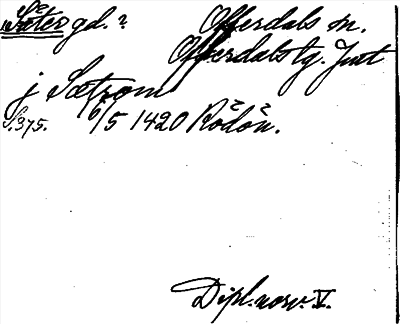 Sæ
Säter gd. ?
Offerdals sn.
Offerdals tg. Jmt
j Sætrom
S. 375. 6/5 1420 Rödön.
Dipl. norv. V.